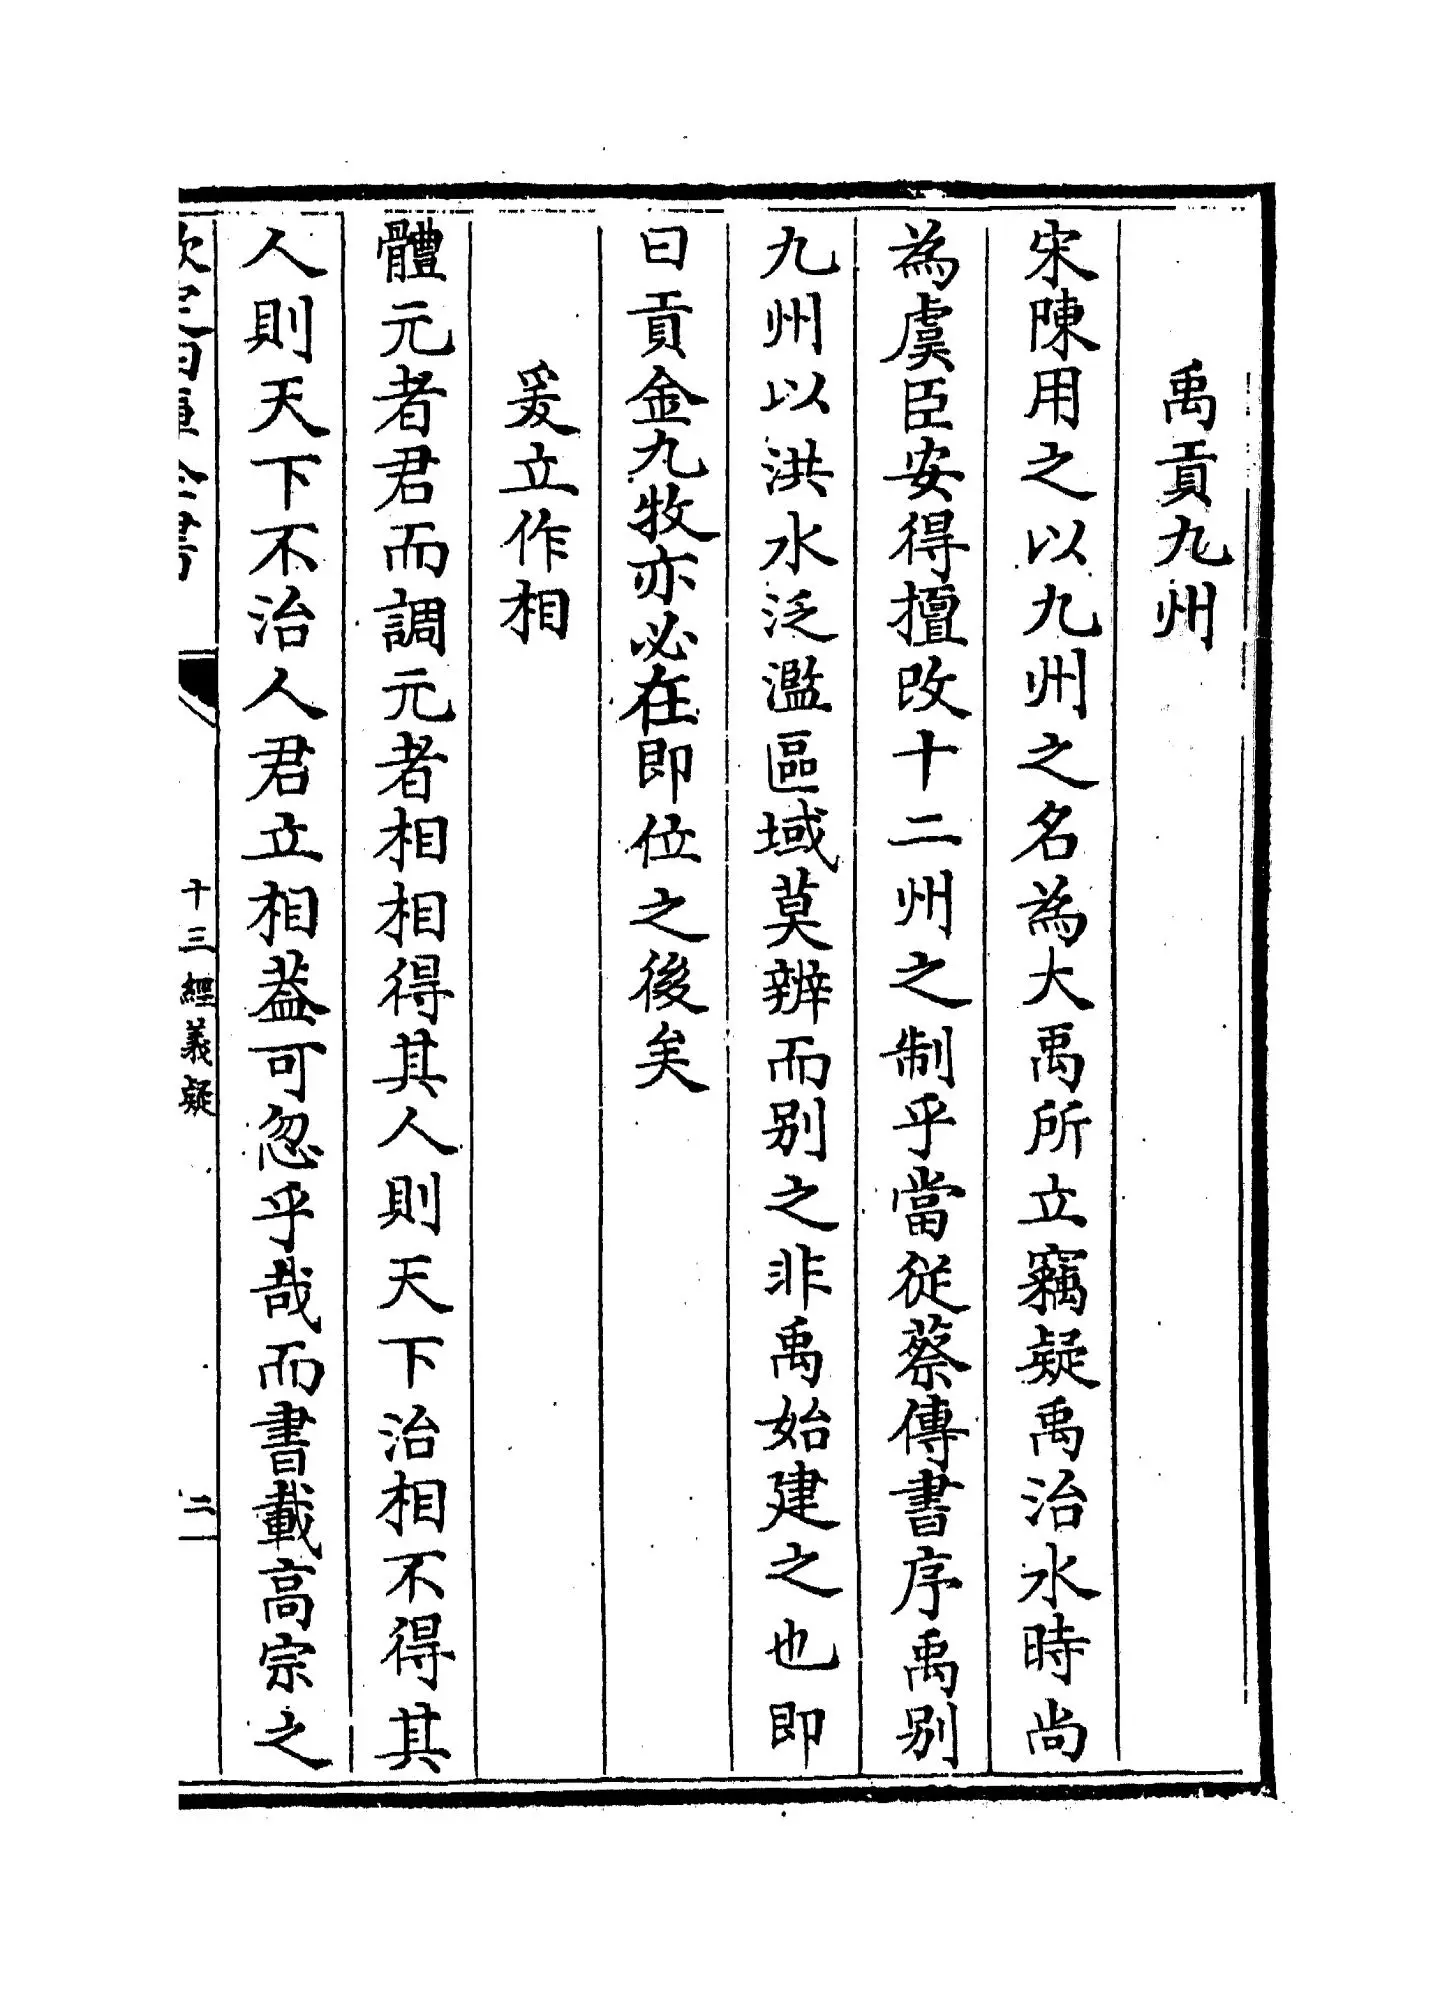 禹貢九州
宋陳用之以九州之名為大禹所立竊疑禹治水時尚
為虞臣安得擅改十二州之制乎當從蔡傳書序禹別
九州以洪水泛濫區域莫辨而別之非禹始建之也即
曰貢金九牧亦必在即位之後矣
爰立作相
體元者君而調元者相相得其人則天下治相不得其
人則天下不治人君立相葢可忽乎哉而書載高宗之
欽定四庫全書
十三經義疑
二